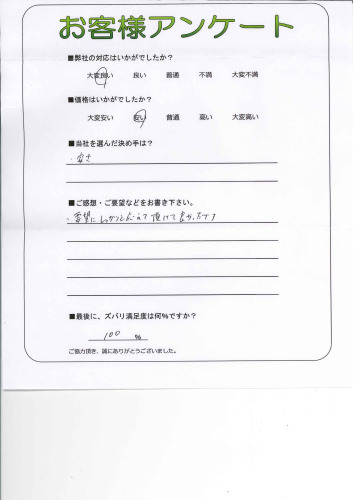 お客様アンケート
■弊社の対応はいかがでしたか？
大変良い 良い 普通 不満 大変不満
■価格はいかがでしたか？
大変安い 安い 普通 高い 大変高い
■当社を選んだ決め手は？
・安さ
■ご感想・ご要望などをお書き下さい。
・要望にしっかりと応えて頂けて良かったです
■最後に、ズバリ満足度は何%ですか？
100 %
ご協力頂き、誠にありがとうございました。